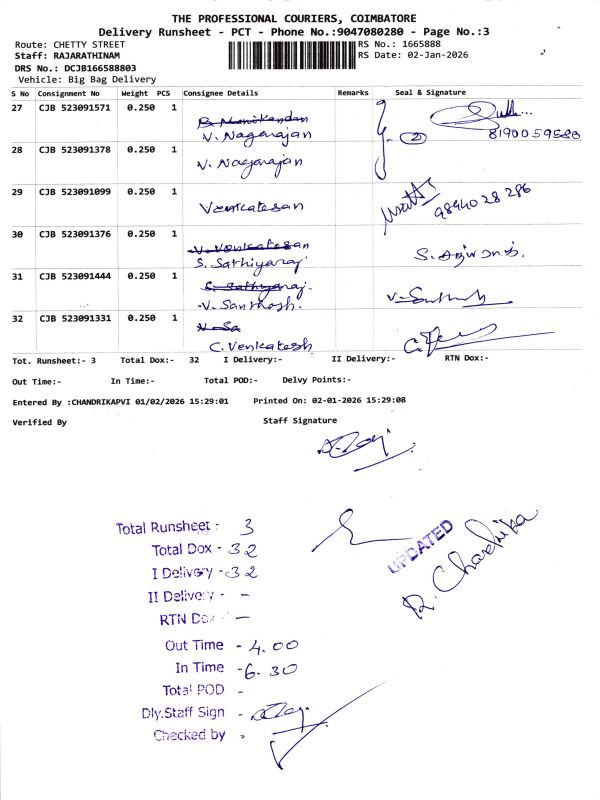 THE PROFESSIONAL COURIERS, COIMBATORE
Delivery Runsheet - PCT - Phone No.:9047080280 - Page No.:3
Route: CHETTY STREET RS No.: 1665888
Staff: RAJARATHINAM RS Date: 02-Jan-2026
DRS No.: DCJB166588803
Vehicle: Big Bag Delivery
S No Consignment No Weight PCS Consignee Details Remarks Seal & Signature
27 CJB 523091571 0.250 1
R. Manikandan
V. Nagarajan 2 8190059580
28 CJB 523091378 0.250 1
V. Nagarajan
29 CJB 523091099 0.250 1
Venkatesan 9894028286
30 CJB 523091376 0.250 1
V. Venkatesan
S. Sathiyaraj
31 CJB 523091444 0.250 1
S. Sathyaraj.
V. Santhosh. V. Santhosh
32 CJB 523091331 0.250 1
V. Sa
C. Venkatesh
Tot. Runsheet:- 3 Total Dox:- 32 I Delivery:- II Delivery:- RTN Dox:-
Out Time:- In Time:- Total POD:- Delvy Points:-
Entered By :CHANDRIKAPVI 01/02/2026 15:29:01 Printed On: 02-01-2026 15:29:08
Verified By Staff Signature
Total Runsheet - 3
Total Dox - 32
I Delivery - 32
II Delivery - -
RTN Dox - -
UPDATED
R. Chandrika
Out Time - 4.00
In Time - 6.30
Total POD -
Dly.Staff Sign -
Checked by -